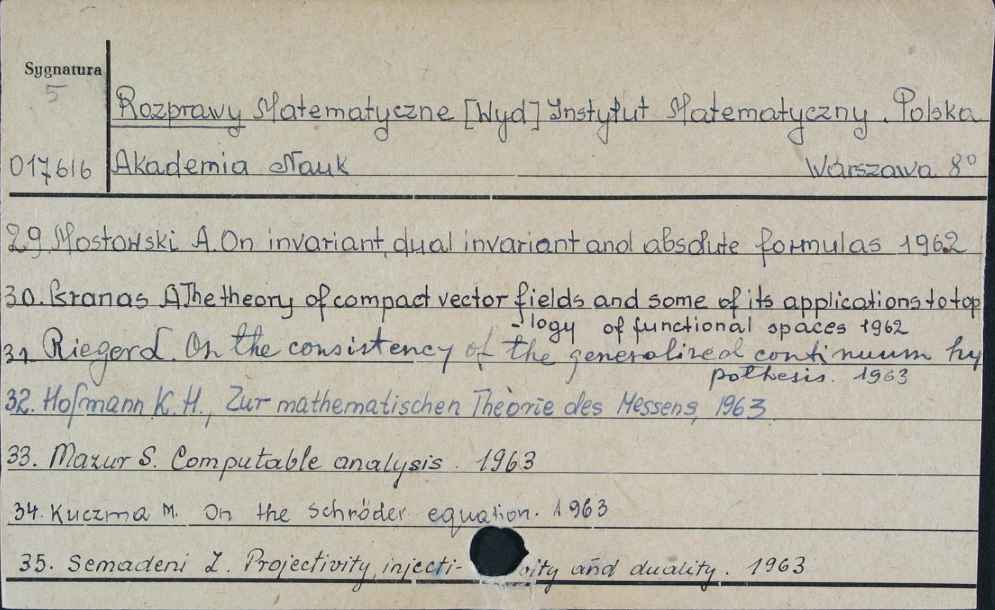 Sygnatura
5
Rozprawy Matematyczne [Wyd] Instytut Matematyczny. Polska
017616 Akademia Nauk Warszawa 8°
29. Mostowski A. On invariant, dual invariant and absolute formulas 1962
30. Granas A The theory of compact vector fields and some of its applications to topo
- logy of functional spaces 1962
31. Rieger d. On the consistency of the generalized continuum hy
pothesis. 1963
32. Hofmann K.H., Zur mathematischen Theorie des Messens, 1963
33. Mazur S. Computable analysis. 1963
34. Kuczma M. On the Schröder equation. 1963
35. Semadeni Z. Projectivity, injecti- vity and duality. 1963